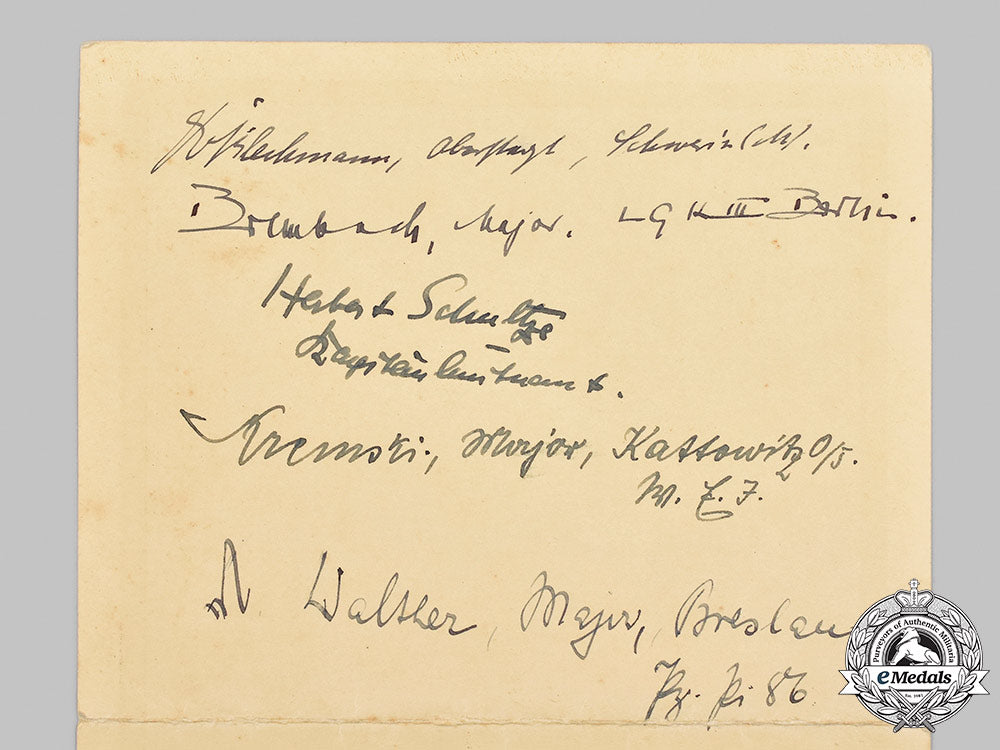 Oberstarzt, Schwerin (M).
Brembach, Major. LGK III Berlin.
Herbert Schultze
Kapitänleutnant.
Kremski, Major, Kattowitz O/S.
W. E. J.
A. Walther, Major, Breslau
Pz. Pi 86
Purveyors of Authentic Militaria
eMedals